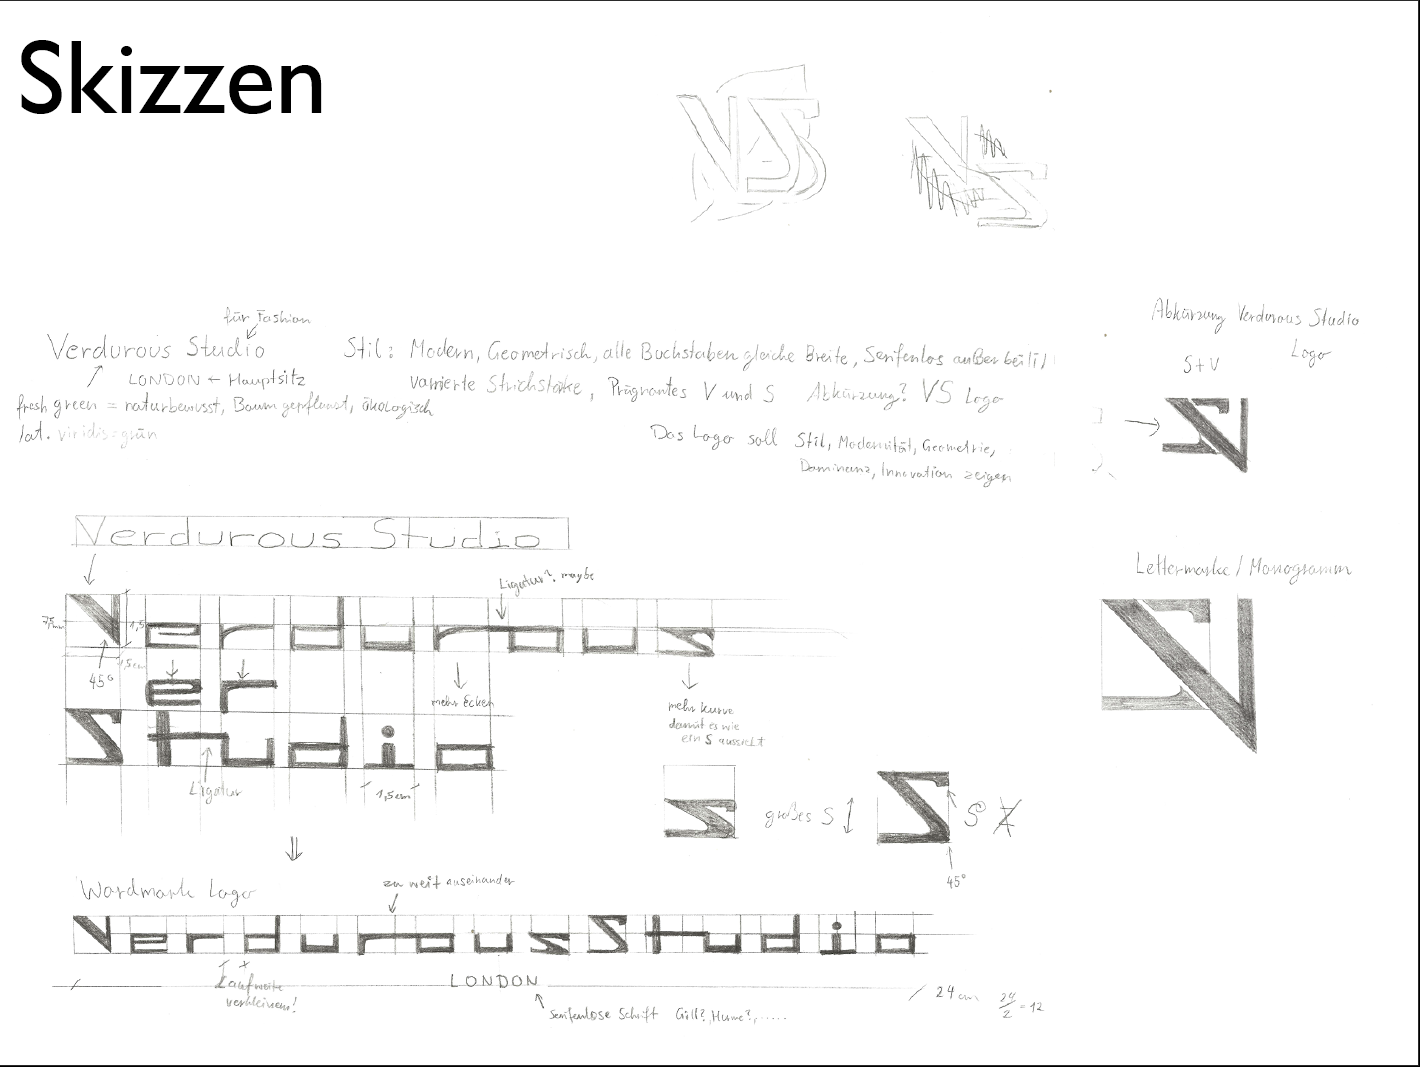 Skizzen
für Fashion
Verdurous Studio
LONDON ← Hauptsitz
fresh green = naturbewusst, Baum gepflanzt, ökologisch
lat. viridis=grün
Stil: Modern, Geometrisch, alle Buchstaben gleiche Breite, Serifenlos außer bei
variierte Strichstärke, Prägnantes V und S Abkürzung? VS Logo
Das Logo soll Stil, Modernität, Geometrie,
Dominanz, Innovation zeigen
Abkürzung Verdurous Studio
Logo
S+V
Lettermarke / Monogramm
Verdurous Studio
Ligatur? maybe
Verdurous
75mm
1,5
1,5cm
45°
er
mehr Ecken
mehr Kurve
damit es wie
ein S aussieht
Studio
Ligatur
1,5cm
großes S
S Z
45°
Wordmark Logo
zu weit auseinander
Verdurous Studio
Laufweite
verkleinern!
LONDON
24cm
24/2 = 12
Serifenlose Schrift Gill?, Hume?, .....